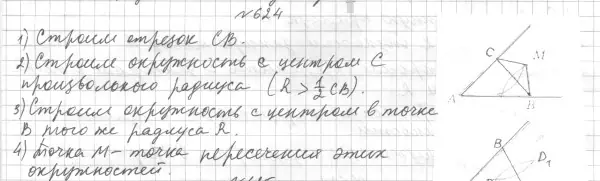 №624
1) Строим отрезок CB.
2) Строим окружность с центром C
произвольного радиуса (R > 1/2 CB).
3) Строим окружность с центром в точке
B того же радиуса R.
4) Точка M - точка пересечения этих
окружностей.
C
M
A
B
B
D₁